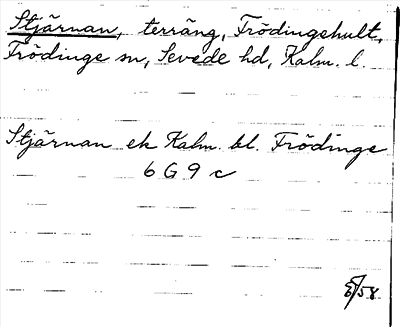 Stjärnan, terräng, Frödingehult,
Frödinge sn, Sevede hd, Kalm. l.
Stjärnan ek Kalm. bl. Frödinge
6 G 9 c